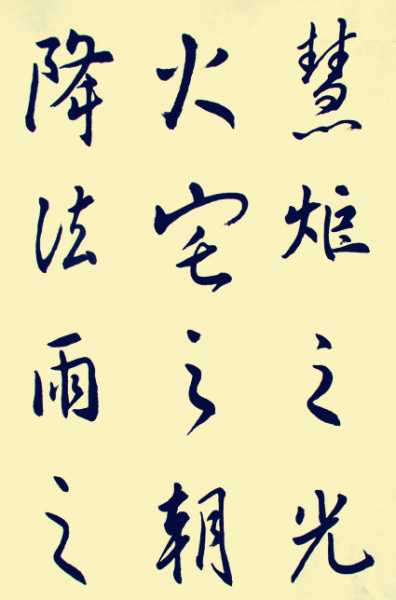 慧炬之光
火宅之朝
降法雨之